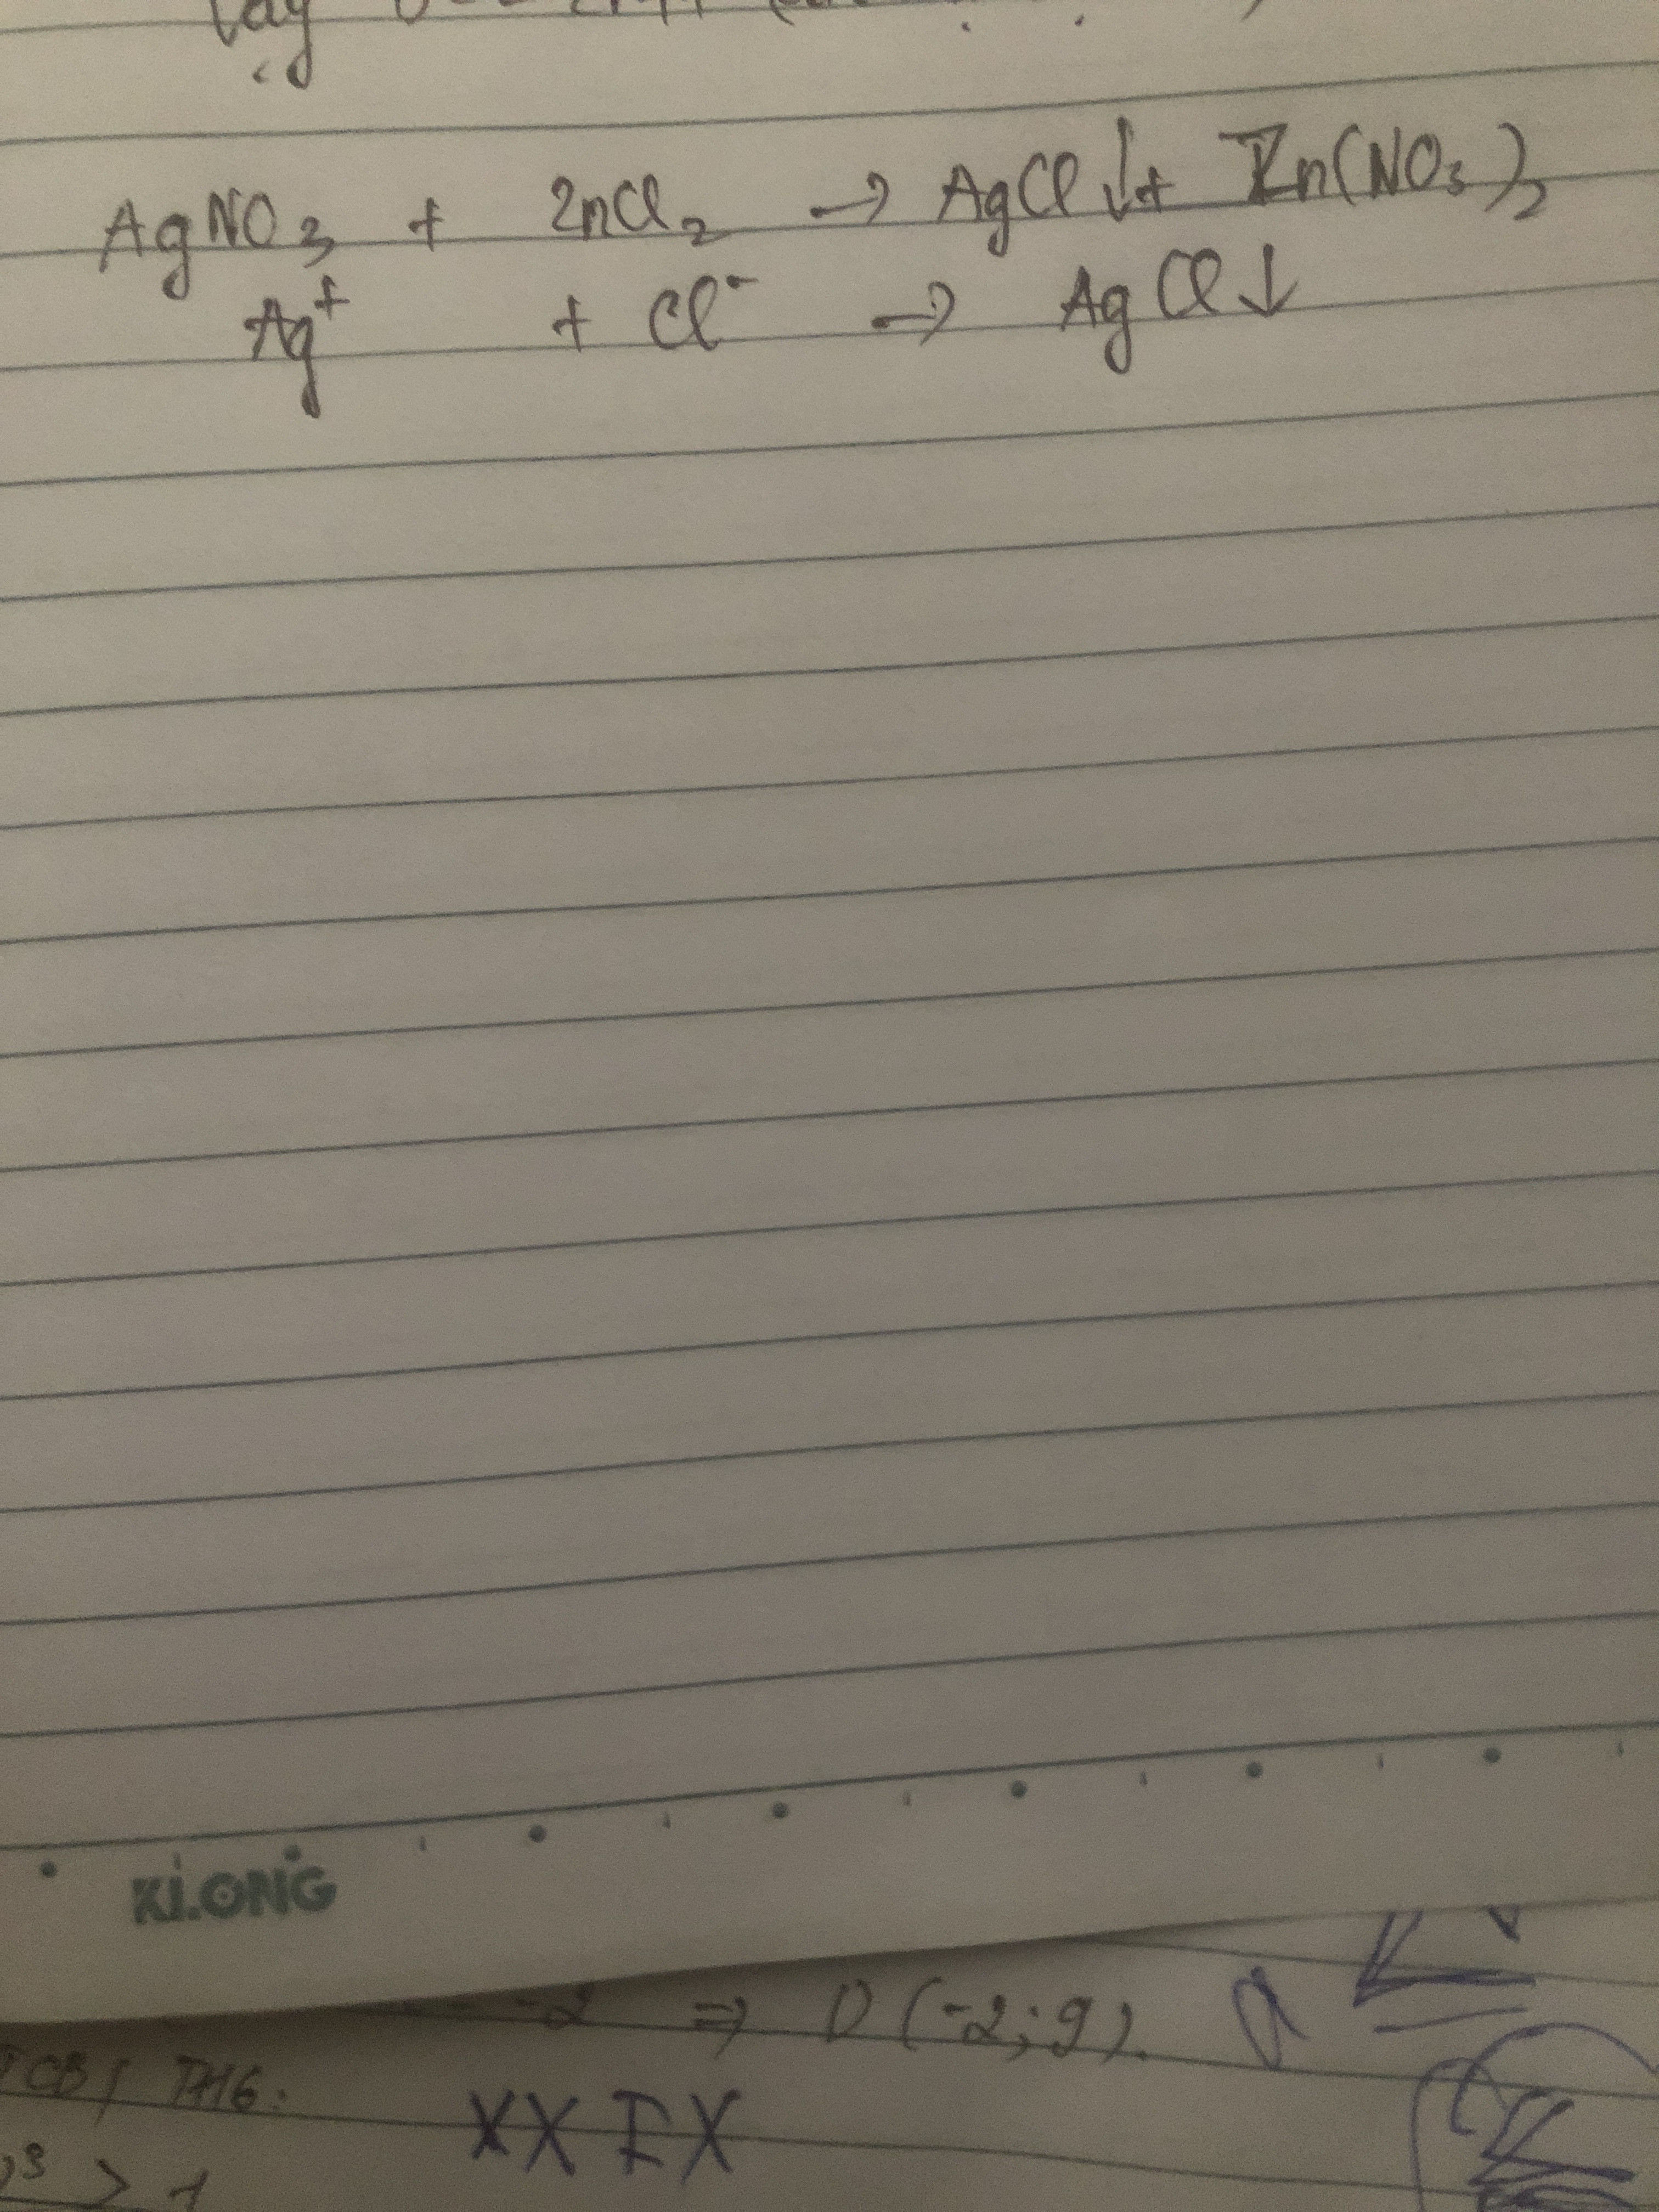 AgNO₃ + ZnCl₂ → AgCl↓ + Zn(NO₃)₂
Ag⁺ + Cl⁻ → AgCl↓
KLONG
-2 ⇒ D(-2;9).
TH6:
XXIX
> 1